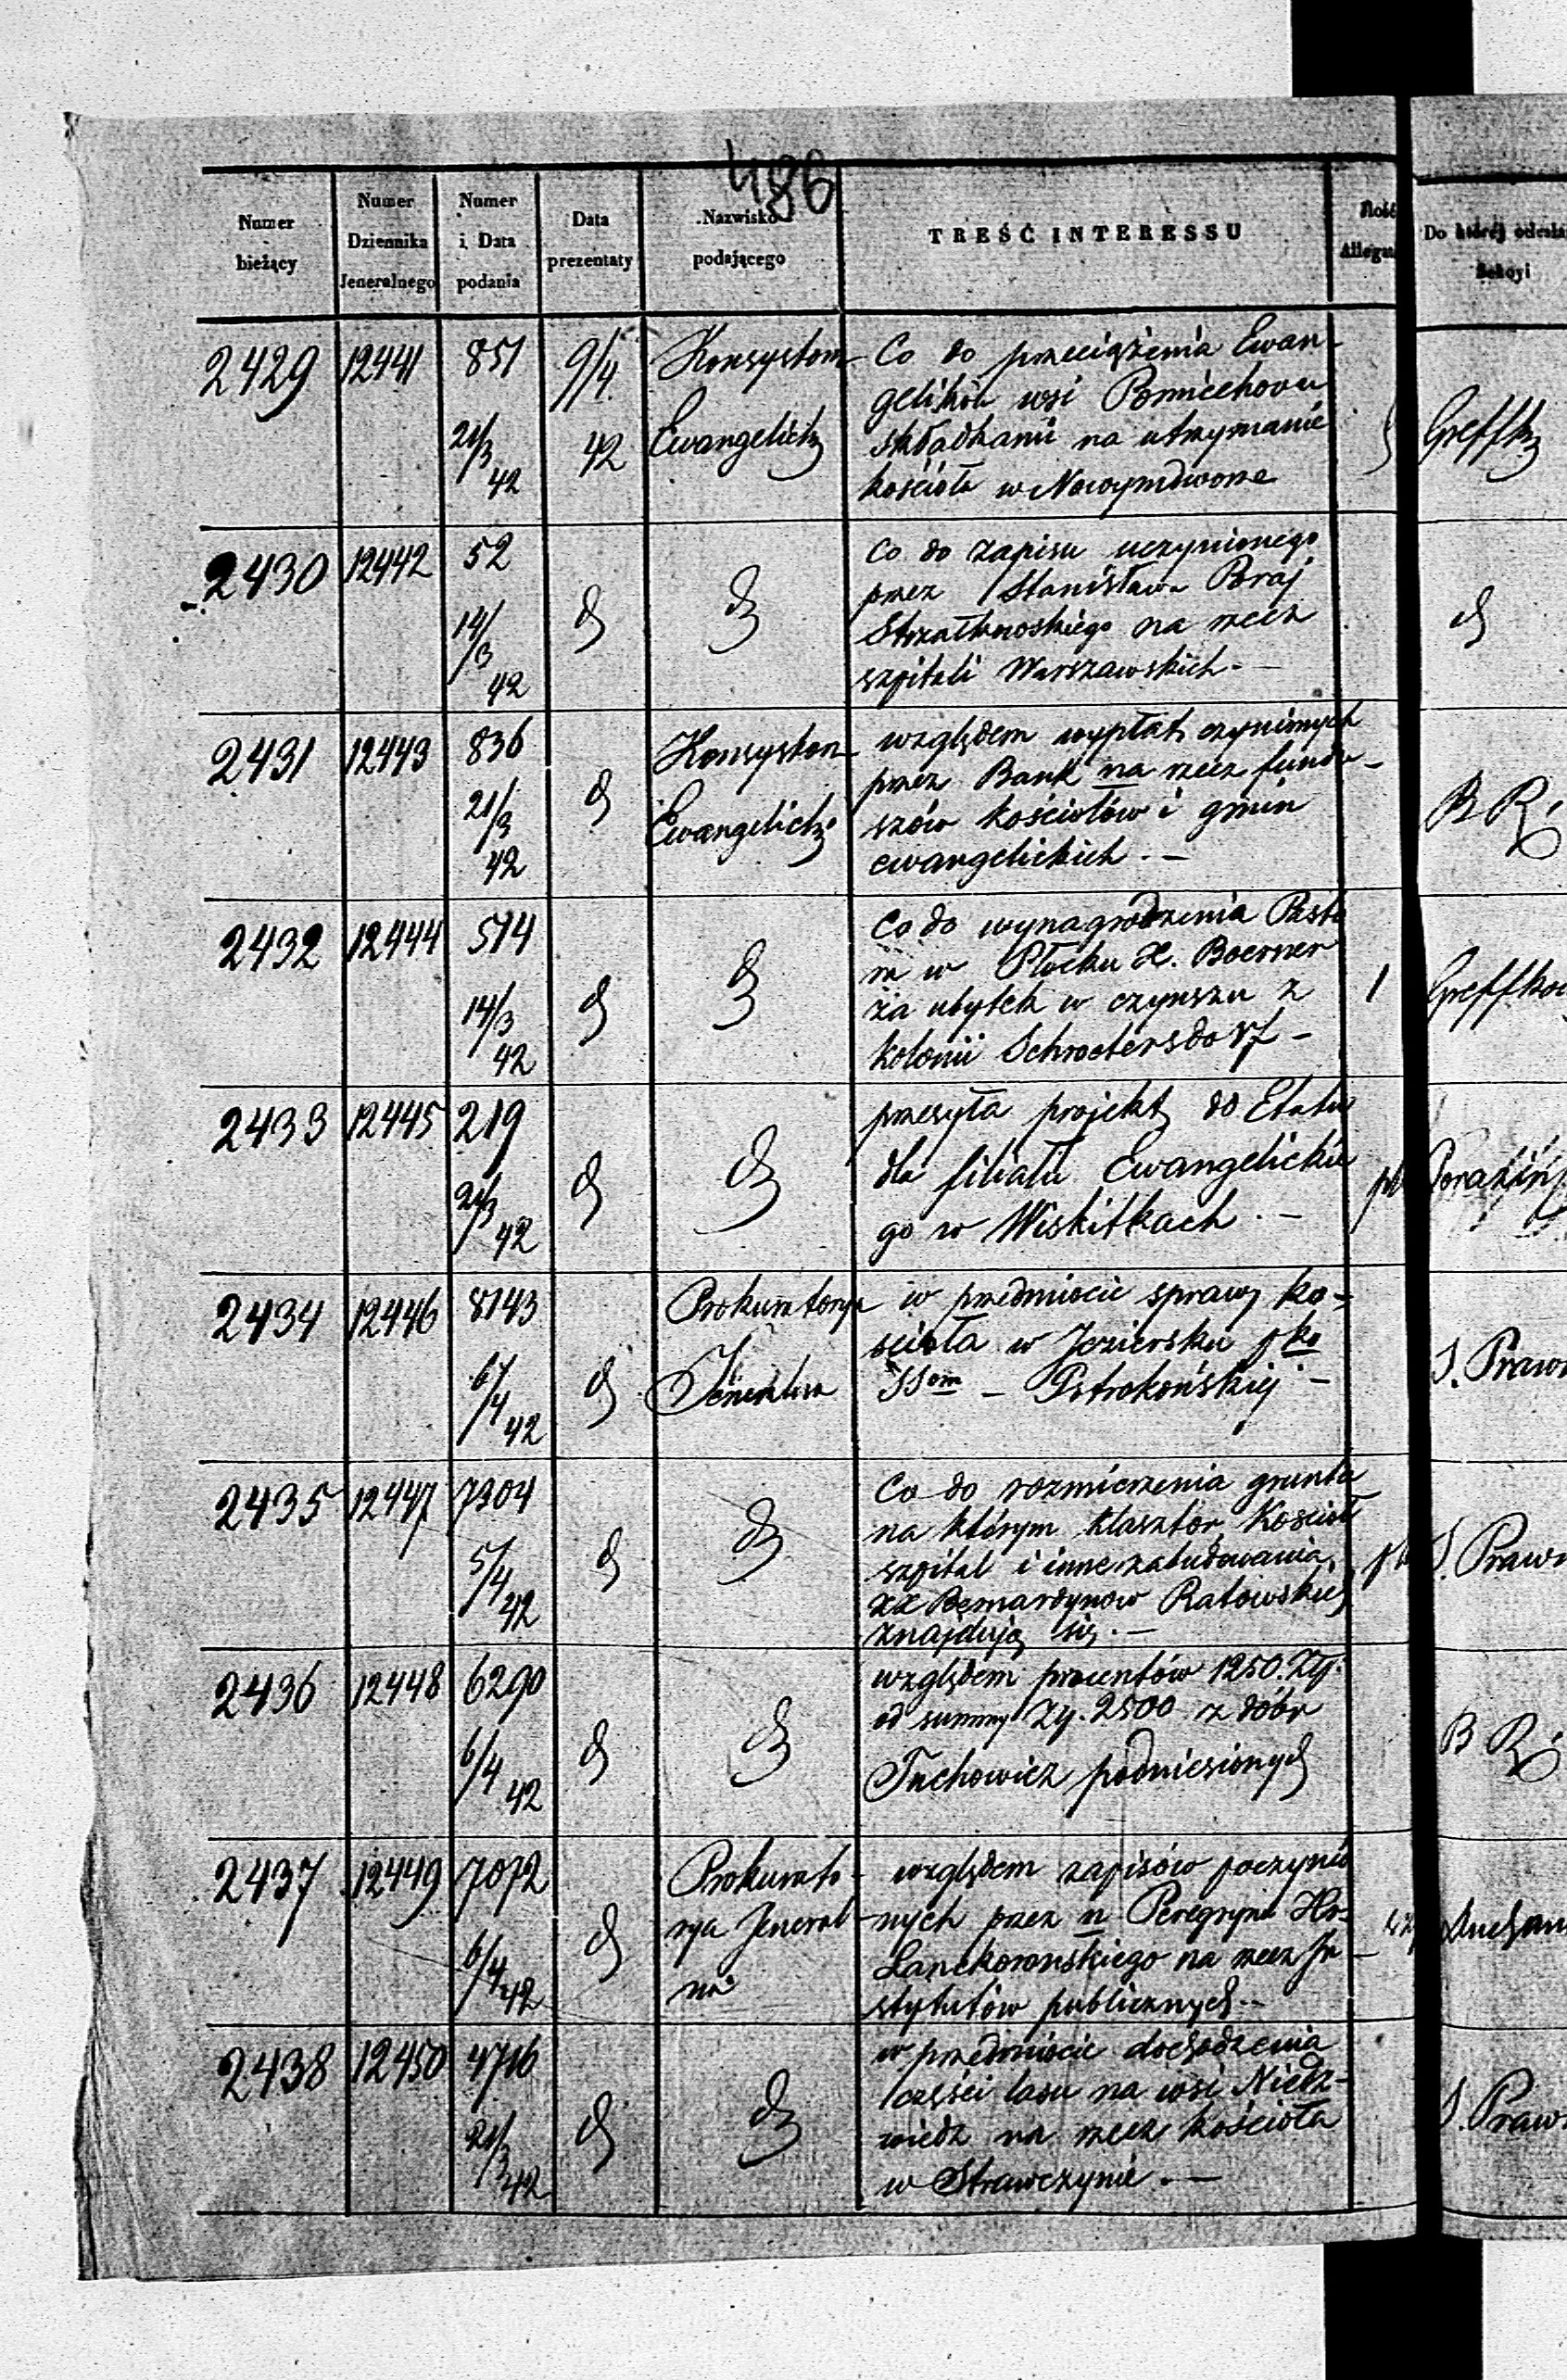 486
Numer bieżący | Numer Dziennika Jeneralnego | Numer i Data podania | Data prezentaty | Nazwisko podającego | TREŚĆ INTERESSU | Ilość Allegat | Do której odesła Sekcyi
2429 | 12441 | 851 21/3 42 | 9/4 42 | Konsystorz Ewangelicki | Co do przeciążenia Ewan-
gelików wsi Pomiechowa
składkami na utrzymanie
kościoła w Nowymdworze
2430 | 12442 | 52 14/3 42 | Co do zapisu uczynionego
przez Stanisława Poraj
Strzałkowskiego na rzecz
szpitali Warszawskich. —
2431 | 12443 | 836 21/3 42 | Konsystorz Ewangelicki | względem wypłat czynionych
przez Bank na rzecz fundu-
szów kościołów i gmin
ewangelickich. — | B R.
2432 | 12444 | 514 14/3 42 | Co do wynagrodzenia Pasto
ra w Płocku X. Boerner
za ubytek w czynszu z
kolonii Schroetersdorf — | 1
2433 | 12445 | 219 21/3 42 | przesyła projekt do Etatu
dla filiału Ewangelickie
go w Wiskitkach. —
2434 | 12446 | 8143 6/4 42 | Prokuratorya Jeneralna | w przedmiocie sprawy ko-
ścioła w Jeziersku pko
SSom — Pstrokońskiej — | S. Prawn
2435 | 12447 | 7304 5/4 42 | Co do rozmierzenia gruntu
na którym klasztor Kościół
szpital i inne zabudowania
XX Bernardynow Ratowskich
znajdują się. — | S. Prawn
2436 | 12448 | 6290 6/4 42 | względem procentów 1250. Zł.
od summy Zł. 2500 z dóbr
Tuchowicz podniesionych | B R.
2437 | 12449 | 7072 6/4 42 | Prokurato-
rya Jeneral-
na | względem zapisów poczynio
nych przez n Peregryna Hr.
Lanckorońskiego na rzecz In-
stytutów publicznych. —
2438 | 12450 | 4716 21/3 42 | w przedmiocie dochodzenia
części lasu na wsi Niedz-
wiedz na rzecz kościoła
w Strawczynie. — | S. Praw